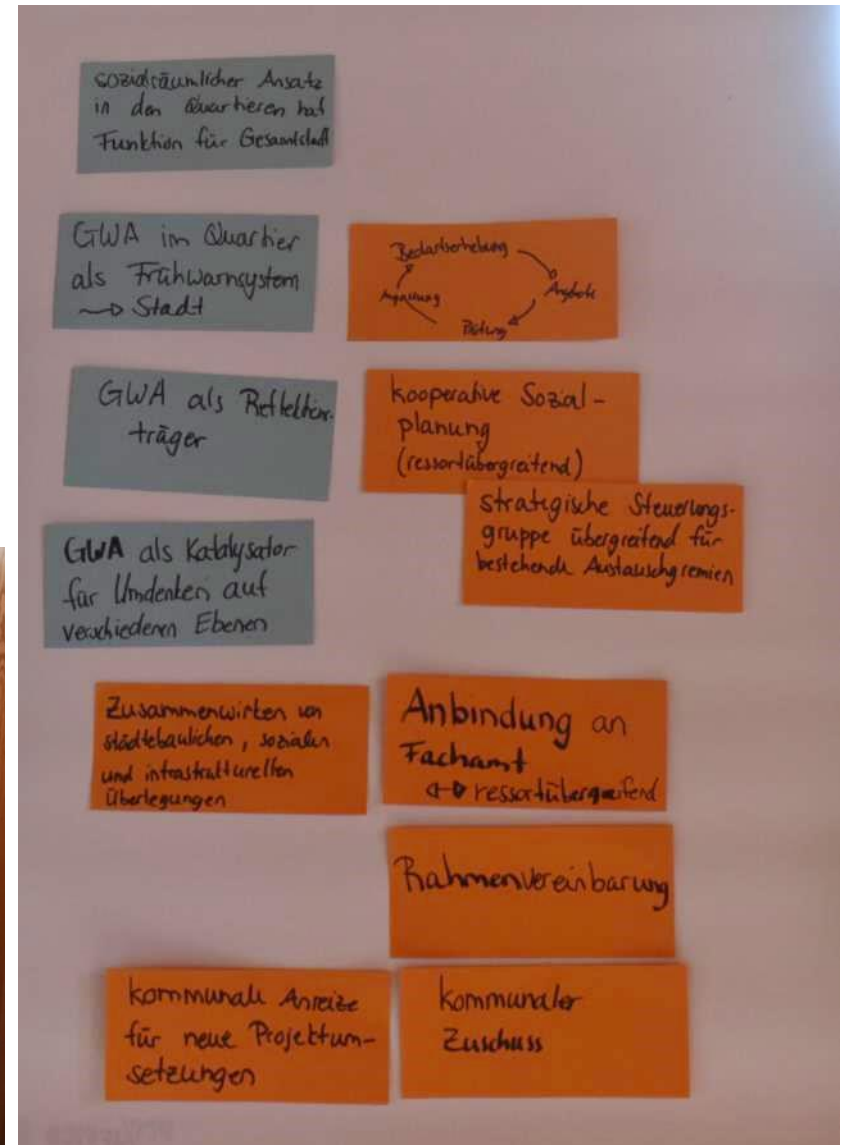 sozialräumlicher Ansatz
in den Quartieren hat
Funktion für Gesamtstadt
GWA im Quartier
als Frühwarnsystem
→ Stadt
Bedarfserhebung
Angebote
Prüfung
Anpassung
GWA als Reflektions-
träger
kooperative Sozial-
planung
(ressortübergreifend)
strategische Steuerungs-
gruppe übergreifend für
bestehende Austauschgremien
GWA als Katalysator
für Umdenken auf
verschiedenen Ebenen
Zusammenwirken von
städtebaulichen, sozialen
und infrastrukturellen
Überlegungen
Anbindung an
Fachamt
↔ ressortübergreifend
Rahmenvereinbarung
kommunale Anreize
für neue Projektum-
setzungen
kommunaler
Zuschuss